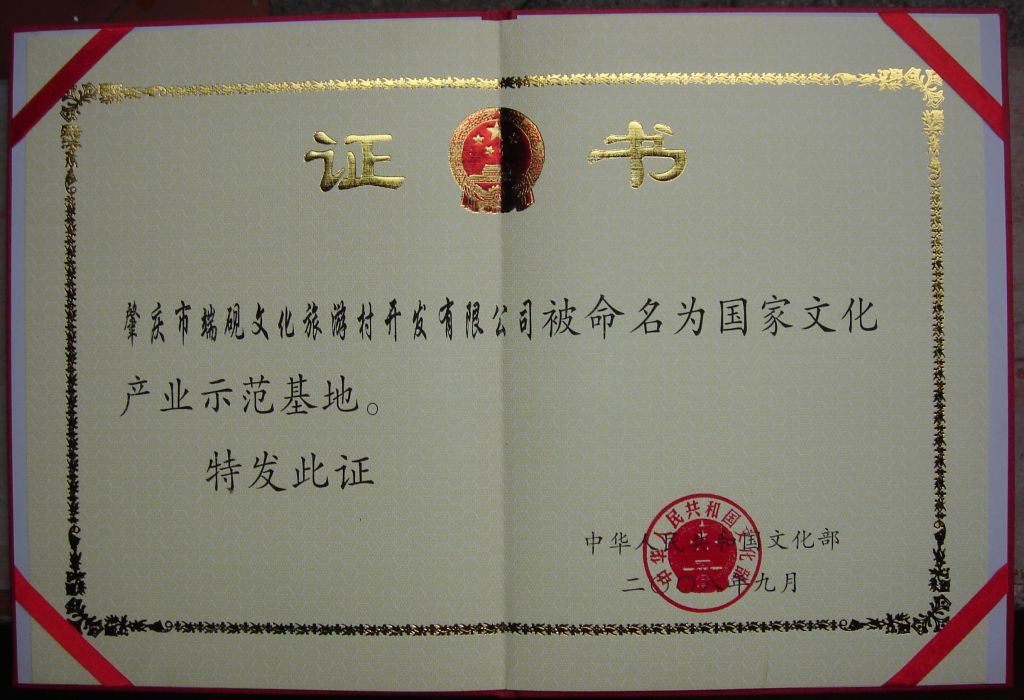 证书
肇庆市端砚文化旅游村开发有限公司被命名为国家文化
产业示范基地。
特发此证
中华人民共和国文化部
二〇〇八年九月
中华人民共和国文化部